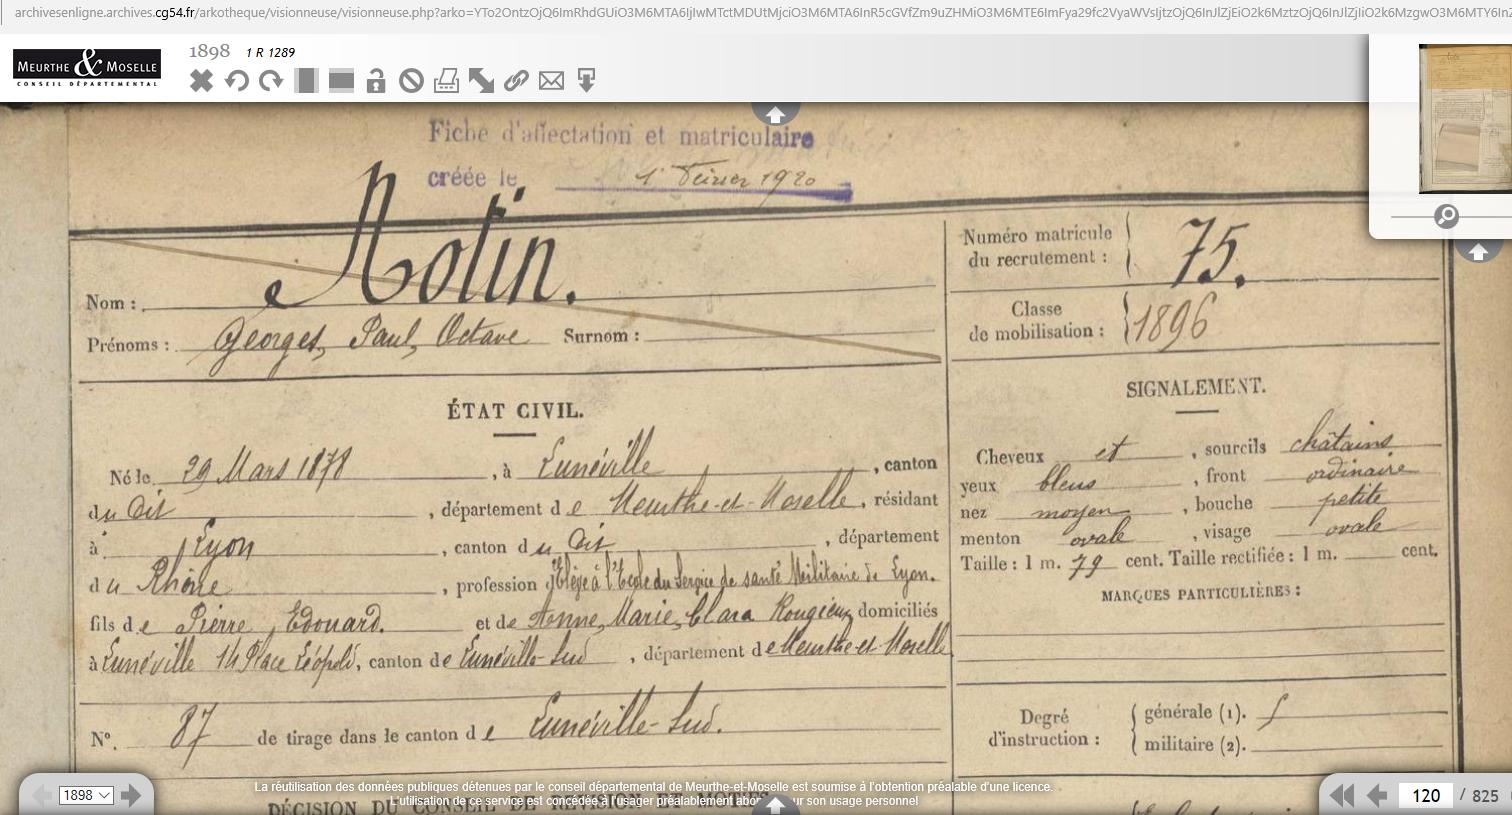 archivesenligne.archives.cg54.fr/arkotheque/visionneuse/visionneuse.php?arko=
MEURTHE & MOSELLE
CONSEIL DÉPARTEMENTAL
1898 1 R 1289
Fiche d'affectation et matriculaire
créée le 1er Février 1920
Nom : Motin.
Prénoms : Georges, Paul, Octave Surnom :
Numéro matricule du recrutement : 75.
Classe de mobilisation : 1896
ÉTAT CIVIL.
Né le 29 Mars 1878, à Lunéville, canton
du dit, département de Meurthe-et-Moselle, résidant
à Lyon, canton du dit, département
du Rhône, profession d'Elève à l'Ecole du Service de santé Militaire de Lyon.
fils de Pierre, Edouard. et de Anne, Marie, Clara Rougieux domiciliés
à Lunéville 14 Place Léopold, canton de Lunéville-Sud, département de Meurthe-et-Moselle
N° 87 de tirage dans le canton de Lunéville-Sud.
SIGNALEMENT.
Cheveux et, sourcils châtains
yeux bleus, front ordinaire
nez moyen, bouche petite
menton ovale, visage ovale
Taille : 1 m. 79 cent. Taille rectifiée : 1 m. cent.
MARQUES PARTICULIÈRES :
Degré d'instruction :
générale (1).
militaire (2).
DÉCISION DU CONSEIL DE RÉVISION ET MOTIFS
La réutilisation des données publiques détenues par le conseil départemental de Meurthe-et-Moselle est soumise à l'obtention préalable d'une licence.
L'utilisation de ce service est concédée à l'usager préalablement pour son usage personnel
1898
120 / 825